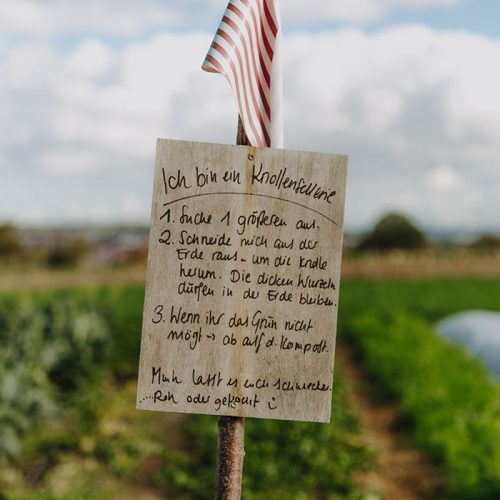 Ich bin ein Knollensellerie
1. Suche 1 größeren aus.
2. Schneide mich aus der
Erde raus – um die Knolle
herum. Die dicken Wurzeln
dürfen in der Erde bleiben.
3. Wenn ihr das Grün nicht
mögt → ab auf d. Kompost.
Mmh lasst es euch schmecken
....Roh oder gekocht :)